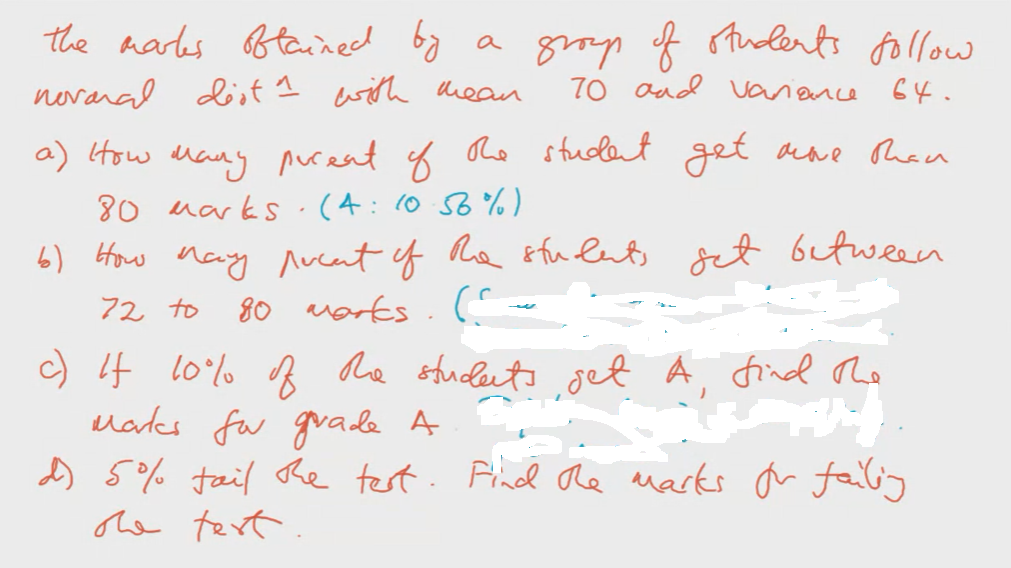 The marks obtained by a group of students follow
normal distn with mean 70 and variance 64.
a) How many percent of the student get more than
80 marks. (A: 10.56%)
b) How many percent of the students get between
72 to 80 marks. (
c) If 10% of the students get A, find the
marks for grade A
d) 5% fail the test. Find the marks for failing
the test.